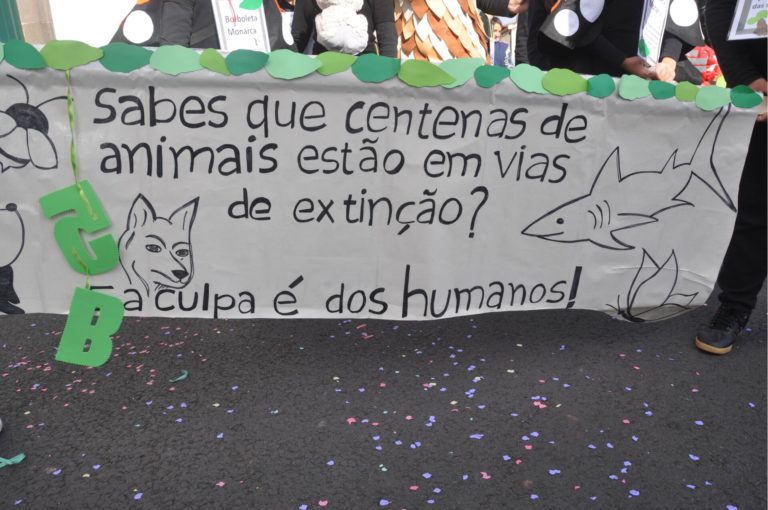 Borboleta
Monarca
das
Sabes que centenas de
animais estão em vias
de extinção?
E a culpa é dos humanos!
5
B